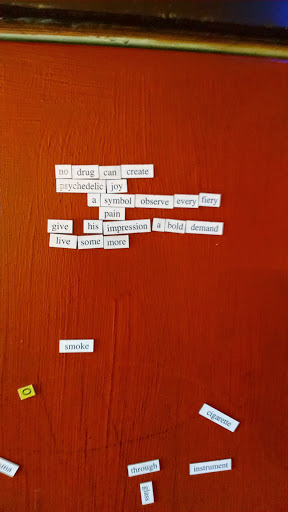 no drug can create
psychedelic joy
a symbol observe every fiery
pain
give his impression a bold demand
live some more
smoke
O
cigarette
through instrument
glass